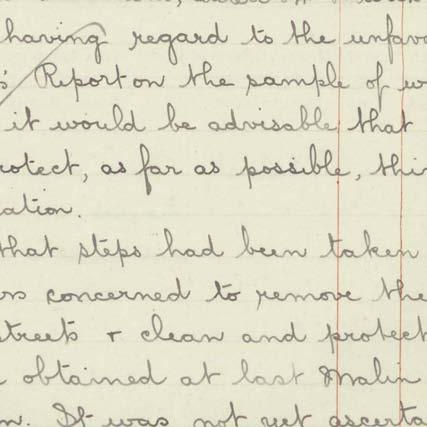 having regard to the unfavo
s' Report on the sample of w
it would be advisable that
rotect, as far as possible, thi
ation.
that steps had been taken
rs concerned to remove the
streets + clean and protect
obtained at last Malin
n. It was not yet ascerta